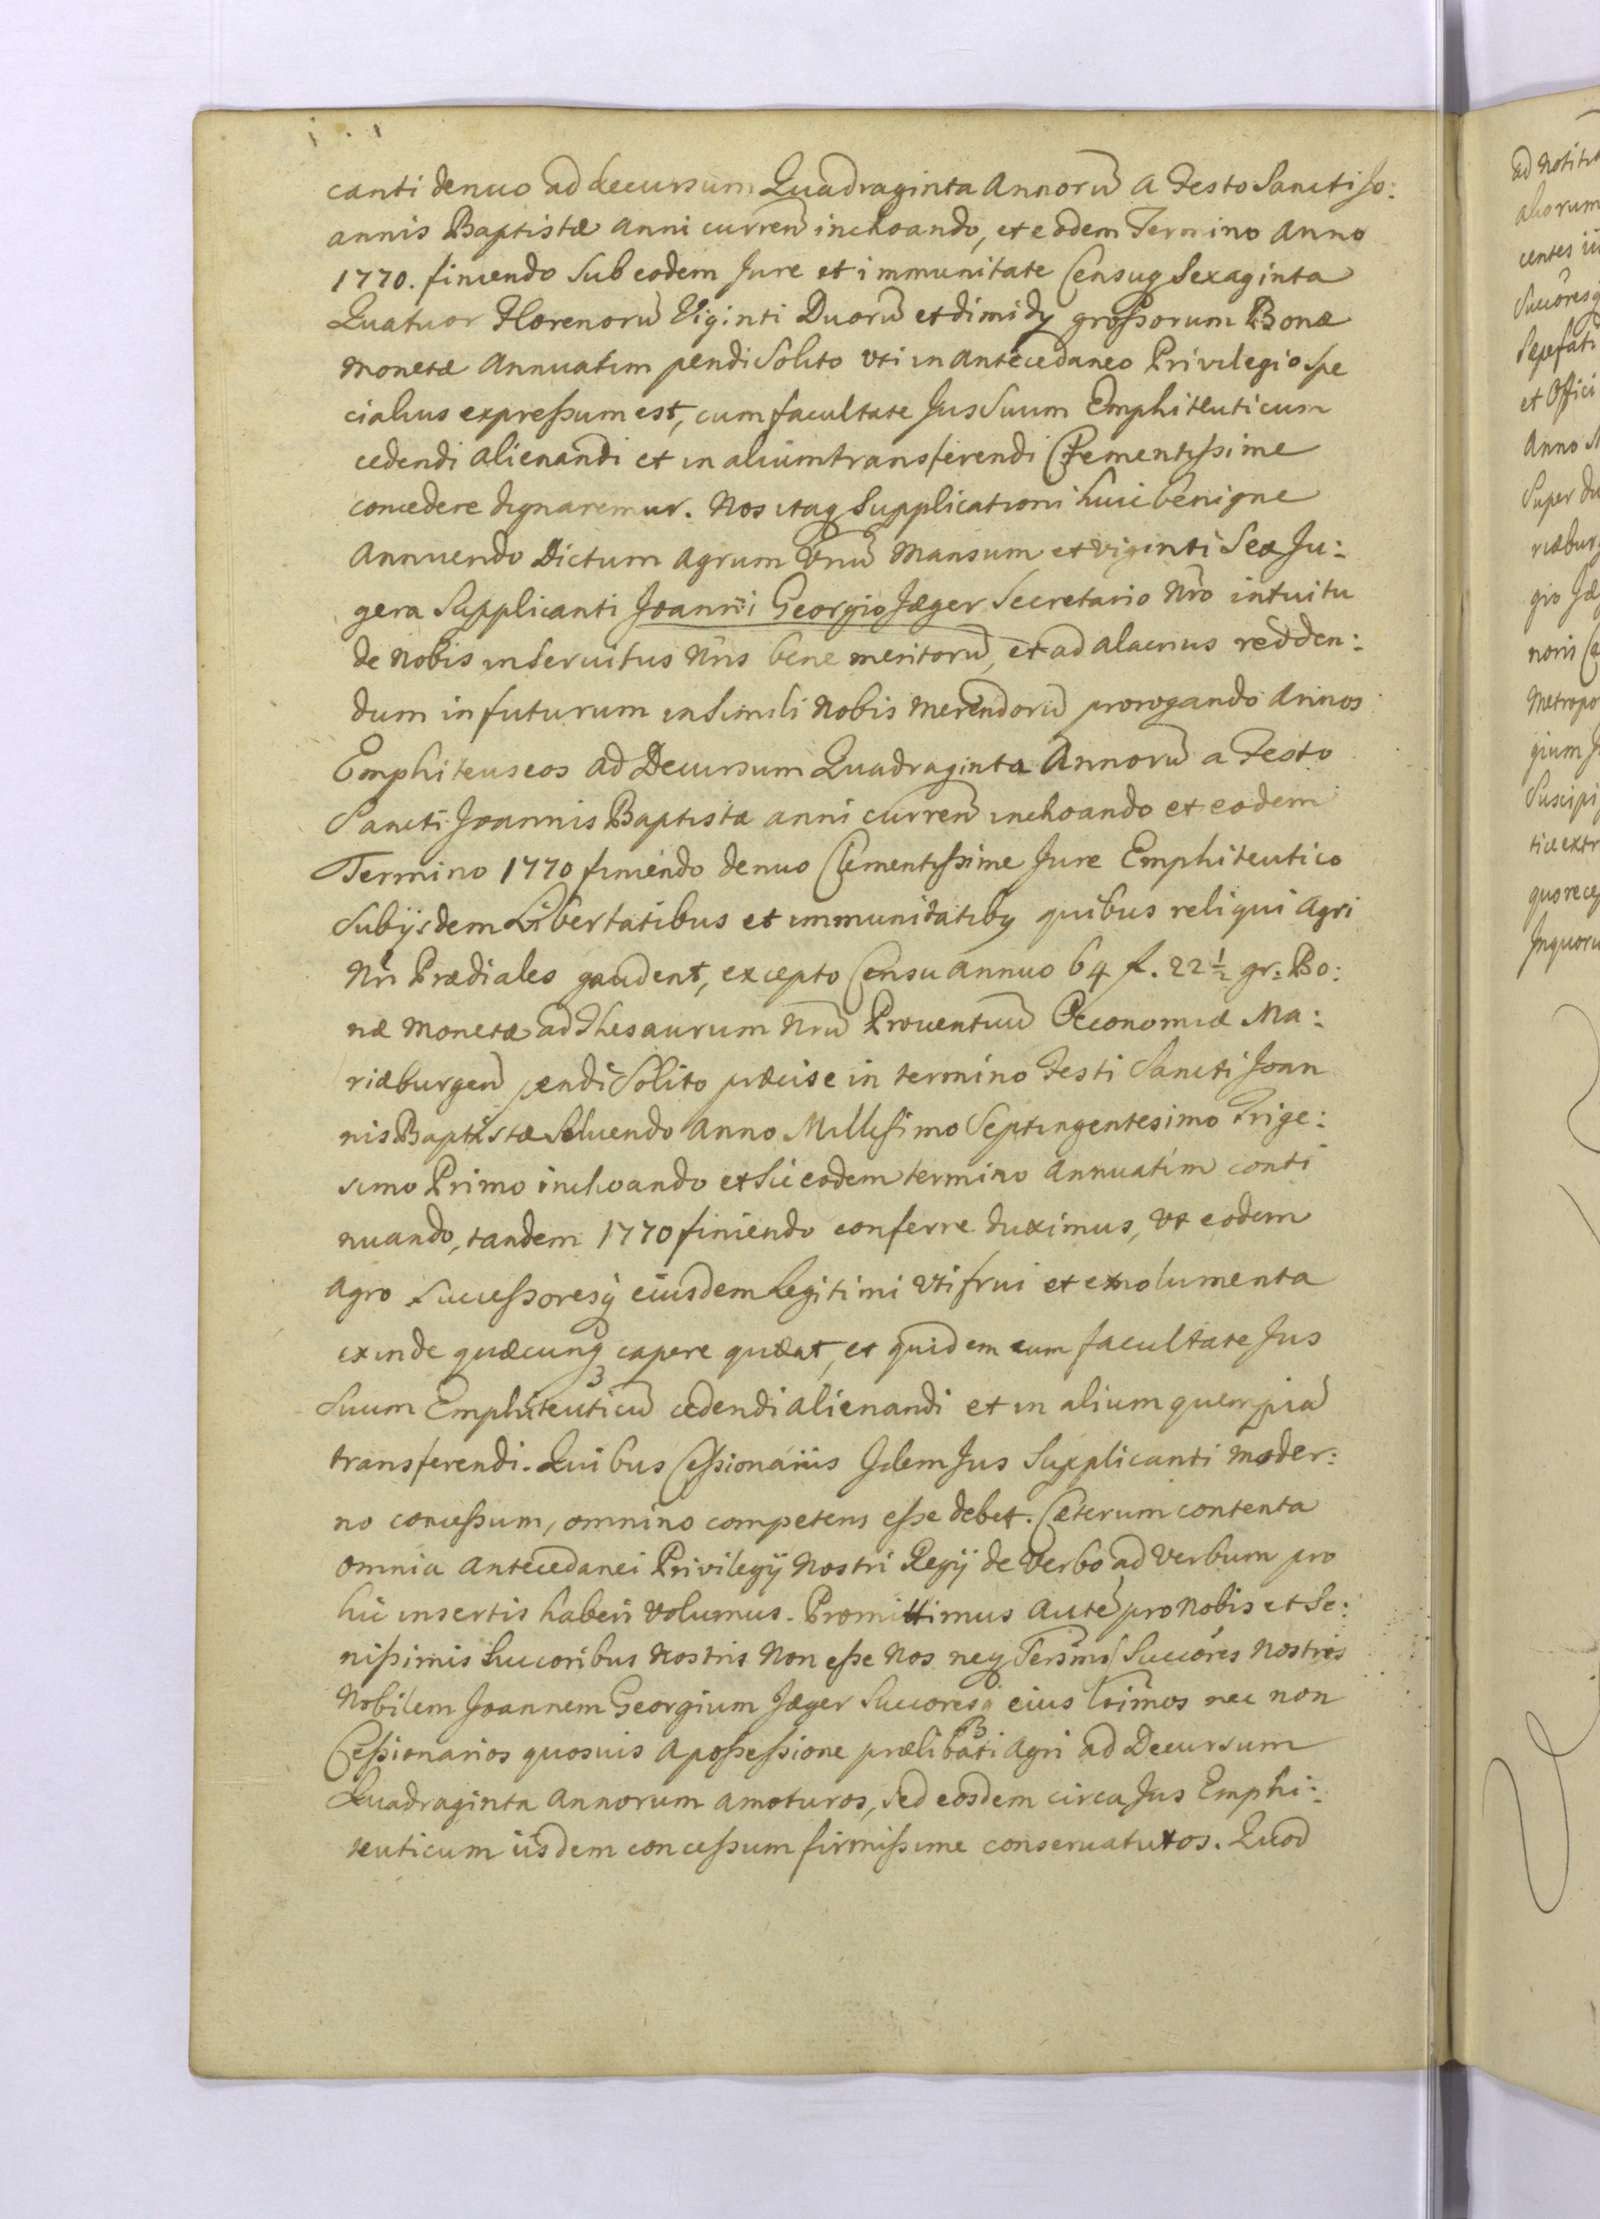 canti denuo ad decursum Quadraginta Annorū a Festo Sancti Jo:
annis Baptistæ Anni curren̄ inchoando, et eodem Termino Anno
1770. finiendo Sub eodem Jure et immunitate Censuq Sexaginta
Quatuor Florenorū Viginti Duorū et dimidy großorum Bonæ
Monetæ Annuatim pendi Solito vti in Antecedaneo Privilegio Spe
cialius expreßum est, cum facultate Jus Suum Emphiteuticum
cedendi alienandi et in alium transferendi Clementißime
concedere dignaremur. Nos itaq Supplicationi huic benigne
Annuendo Dictum Agrum Vnū Mansum et viginti Sex Ju:
gera Supplicanti Joanni Georgio Jæger Secretario Nrō intuitu
de Nobis in Servitus Nrīs bene meritorū, et ad alacrius redden:
dum in futurum in Simili Nobis Merendorū prorogando Annos
Emphiteuseos ad Decursum Quadraginta Annorū a Festo
Sancti Joannis Baptistæ anni curren̄ inchoando et eodem
Termino 1770 finiendo denuo Clementißime Jure Emphiteutico
Sub ijsdem Libertatibus et immunitatiby quibus reliqui Agri
Nrī Prædiales gaudent, excepto Censu annuo 64 f. 22 ½ gr: Bo:
næ Monetæ ad Thesaurum Nrū Proventuū Œconomiæ Ma:
riæburgen̄ pendi Solito præcise in termino Festi Sancti Joan
nis Baptistæ Solvendo Anno Millesimo Septingentesimo Trige:
simo Primo inchoando et Sic eodem termino Annuatim conti
nuando, tandem 1770 finiendo conferre duximus, Vt eodem
Agro Succeßoresq eiusdem Legitimi Vti frui et emolumenta
exinde quæcunq capere quæat, et quidem cum facultate Jus
Suum Emphiteuticū cedendi alienandi et in alium quempiā
transferendi. Quibus Ceßionariis Idem Jus Supplicanti Moder:
no conceßum, omnino competens eße debet. Cæterum contenta
omnia Antecedanei Privilegÿ Nostri Regÿ de Verbo ad Verbum pro
hic insertis haberi Volumus. Promittimus Autē pro Nobis et Se:
nißimis Succoribus Nostris Non eße Nos neq Sersmōs Succōres Nostros
Nobilem Joannem Georgium Jæger Succoresq eius Ltimos nec non
Ceßionarios quosvis a poßeßione prælibati Agri ad Decursum
Quadraginta Annorum amoturos, Sed eosdem circa Jus Emphi:
teuticum iisdem conceßum firmißime conservaturos. Quod
ad Notiti
aliorum
Sucōresq
et Offici
Anno
Super
gio Jæ
Metropo
gium
Suscipi